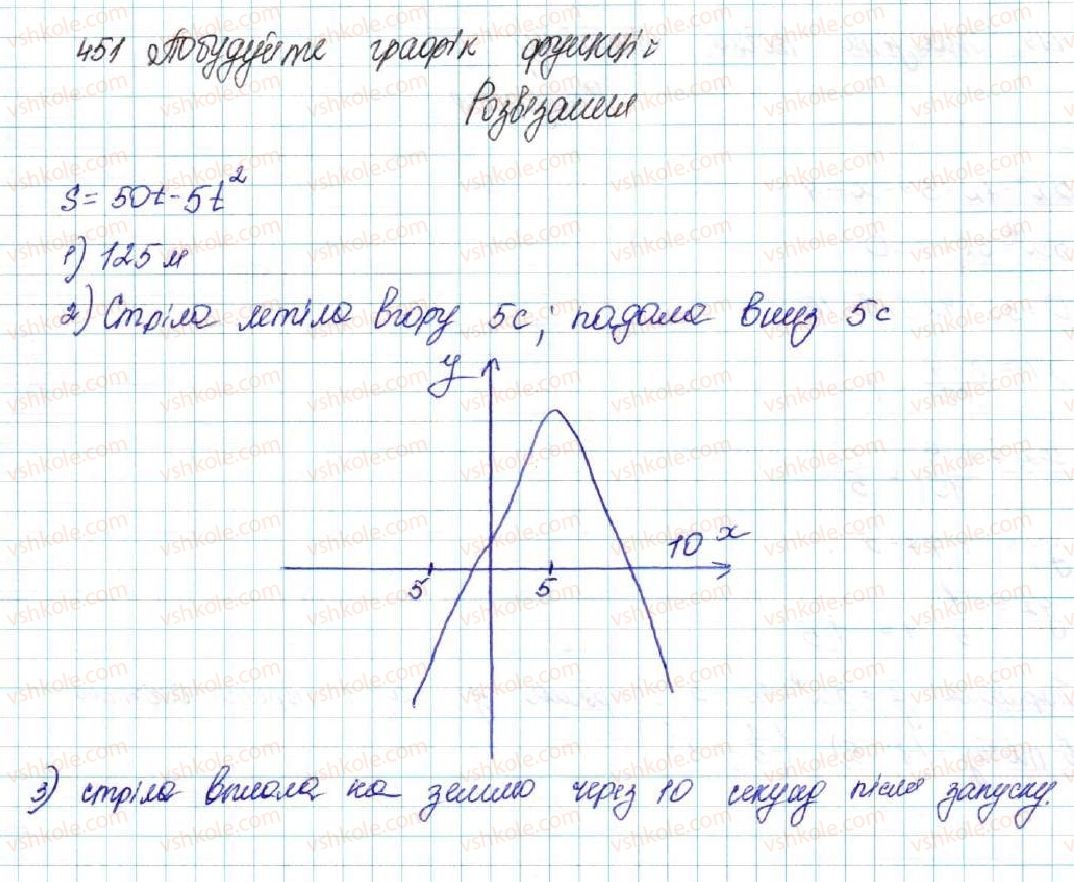 451 Побудуйте графік функції
Розвізання
S = 50t - 5t²
1) 125 м
2) Стріла летіла вгору 5с; падала вниз 5с
y
10 x
5 5
3) стріла впала на землю через 10 секунд після запуску.